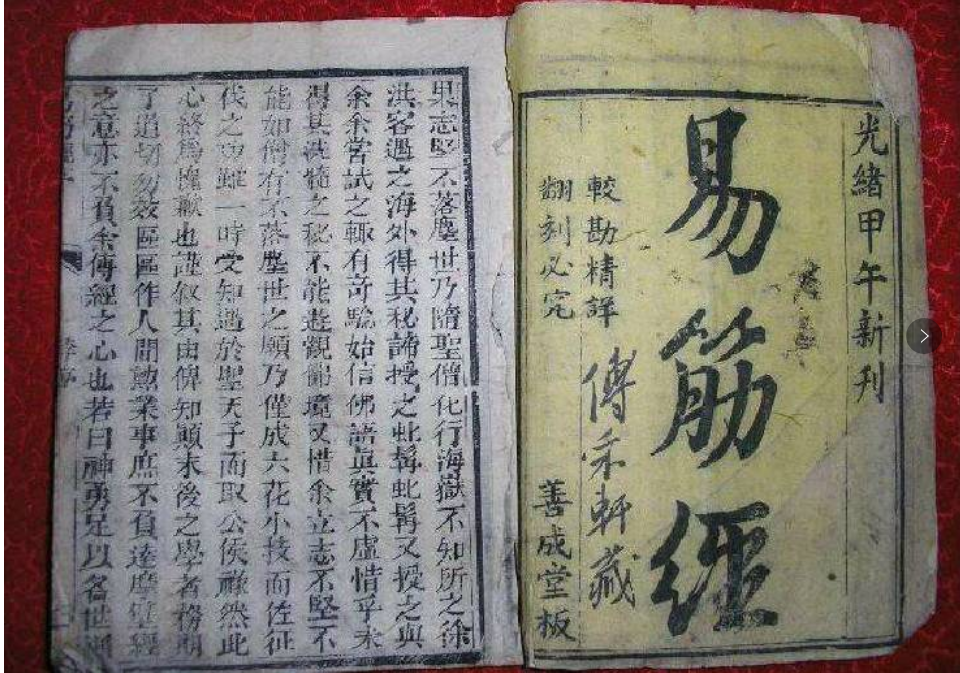 光緒甲午新刊
易筋經
較勘精詳
翻刻必究
傅禾軒藏
善成堂板
果志堅不落塵世乃隨聖僧化行海嶽不知所之徐
洪客遇之海外得其秘諦授之虬髯虬髯又授之與
余余嘗試之輒有奇驗始信佛語眞實不虛惜乎未
得其洗髓之秘不能遊觀佛境又惜余立志不堅不
能如僧有不落塵世之願乃僅成六花小技而佐征
伐之功雖一時受知遇於聖天子而取公侯祿然此
心終爲愧歉也謹叙其由俾知顛末後之學者務期
了道切勿效區區作人間勲業事庶不負達摩
經
之意亦不負余傳經之心也若曰神勇足以名世
李序